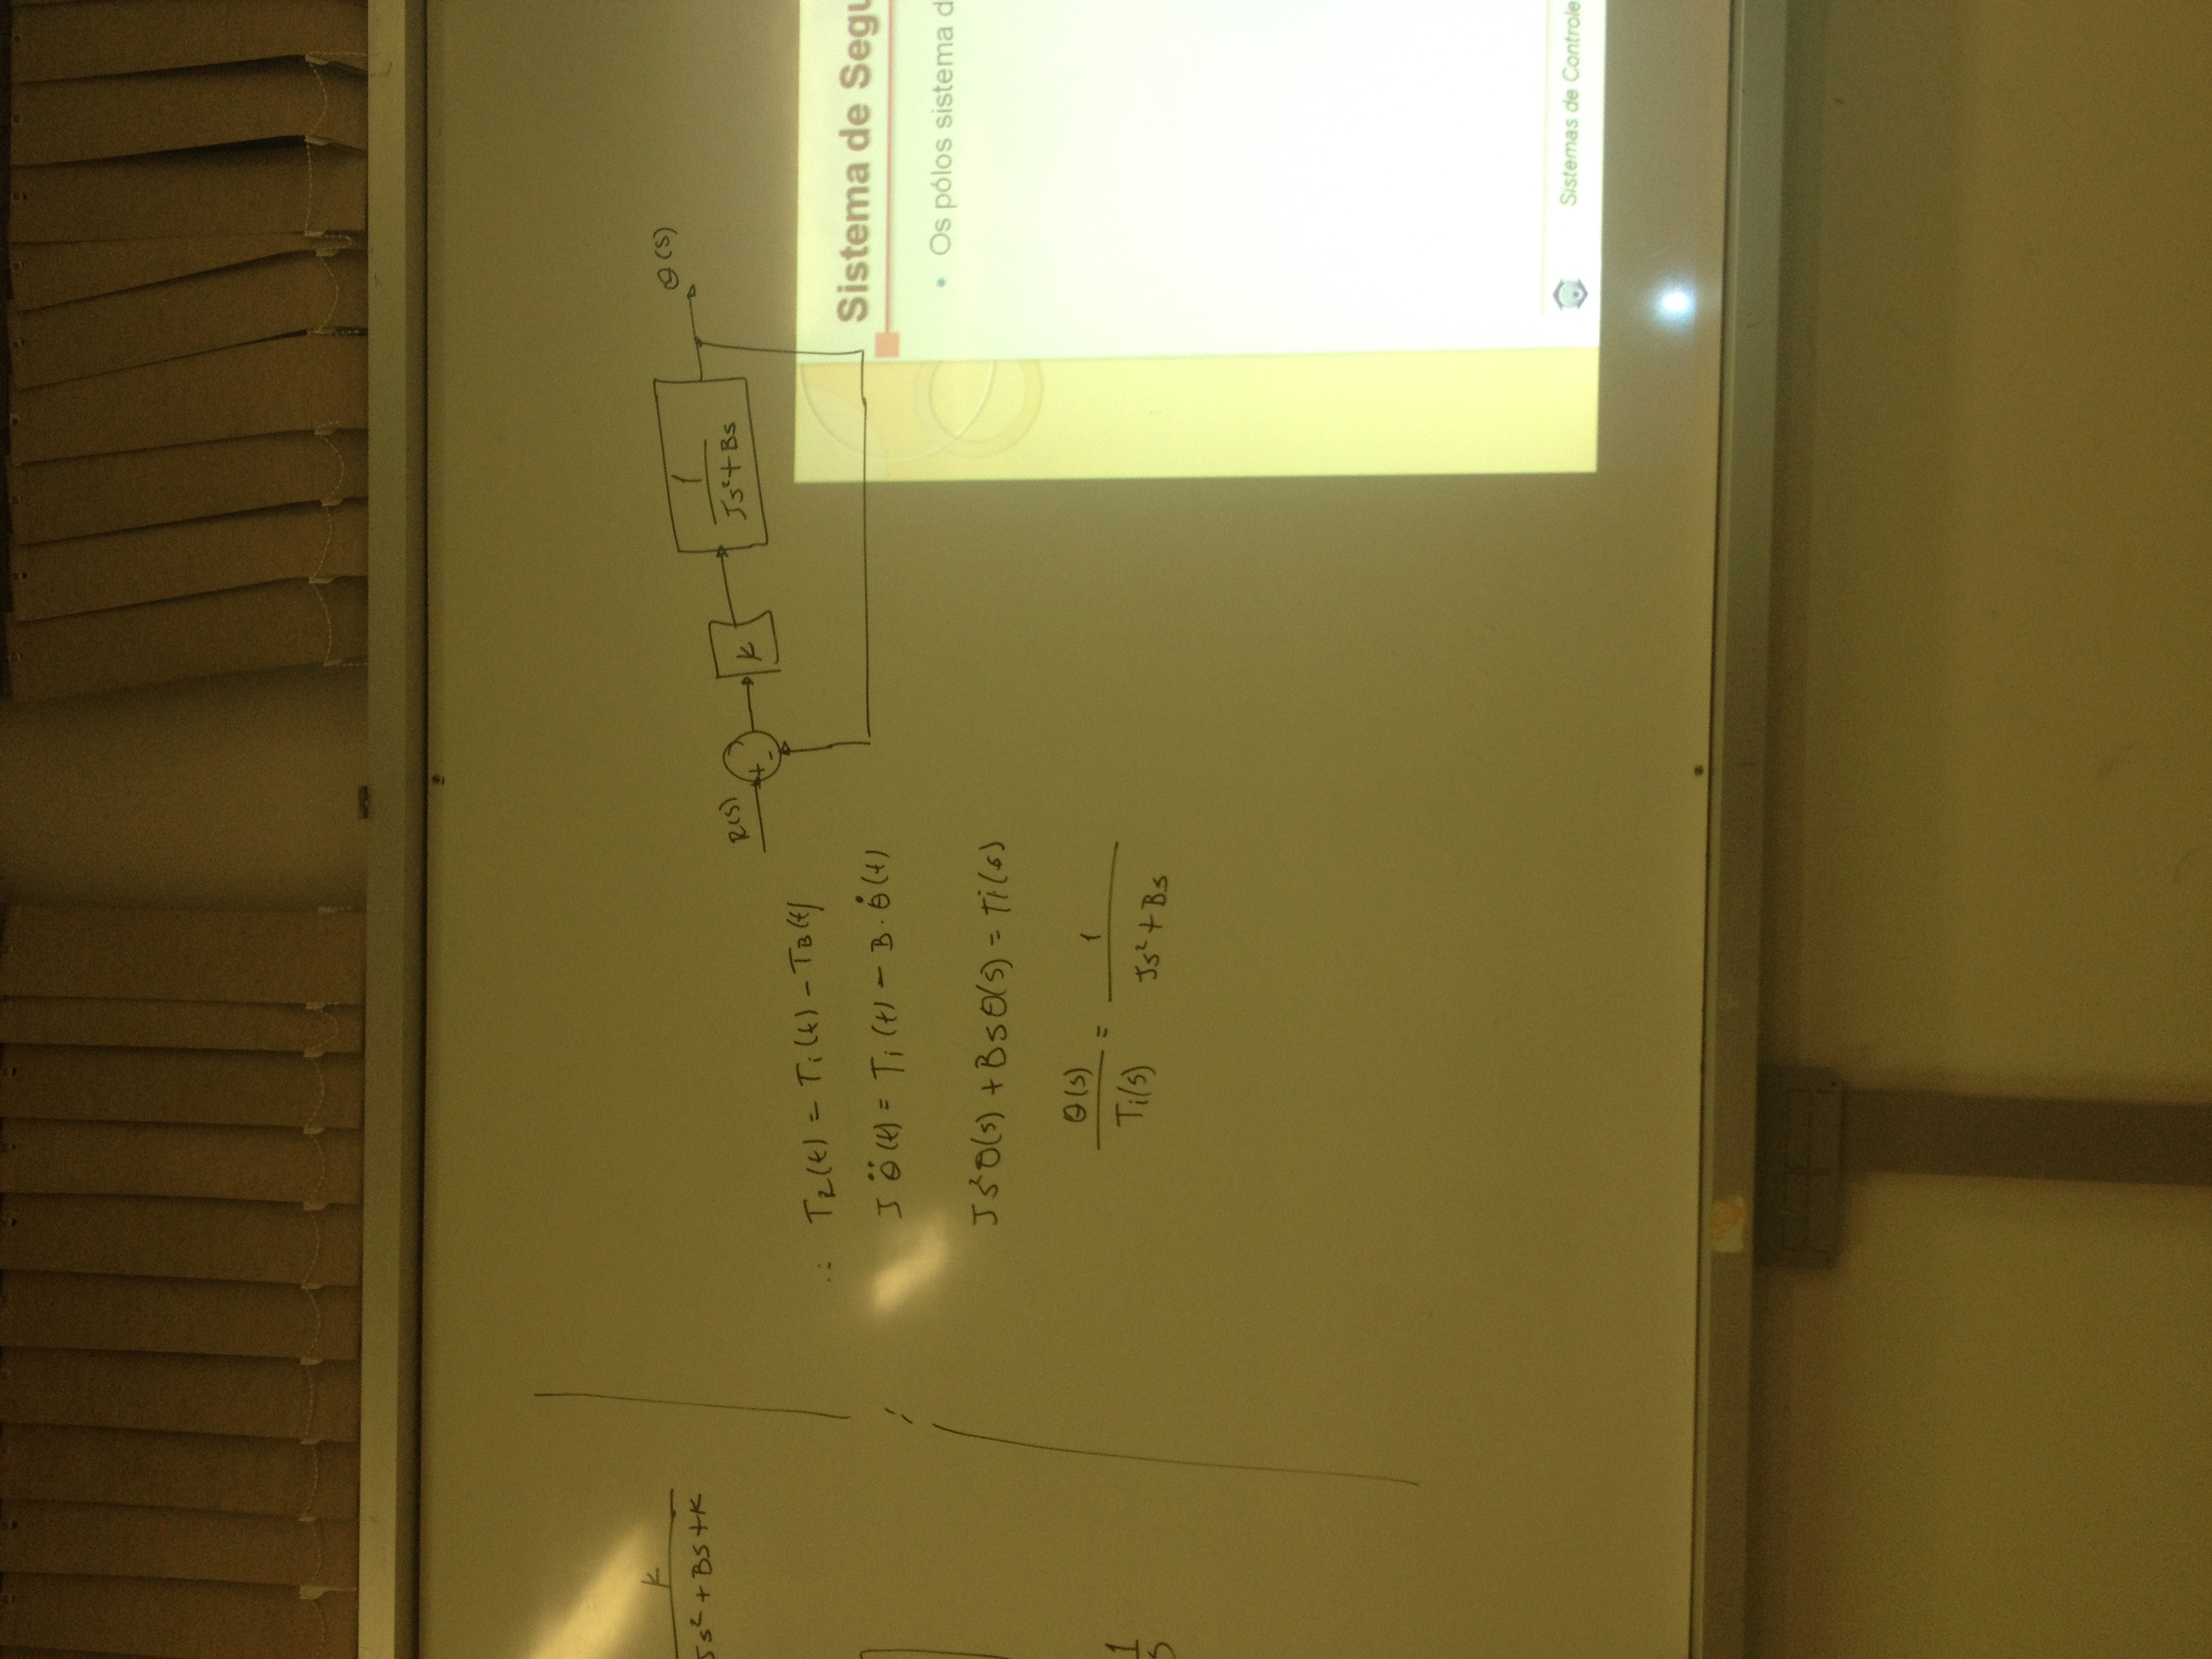 K
Js² + Bs + K
1
s
∴ T_R(t) = T_i(t) − T_B(t)
J θ̈(t) = T_i(t) − B · θ̇(t)
Js²θ(s) + Bsθ(s) = Ti(s)
θ(s) / Ti(s) = 1 / Js² + Bs
R(s)
+
-
K
1 / Js² + Bs
θ(s)
Sistema de Segu
• Os pólos sistema d
Sistemas de Controle